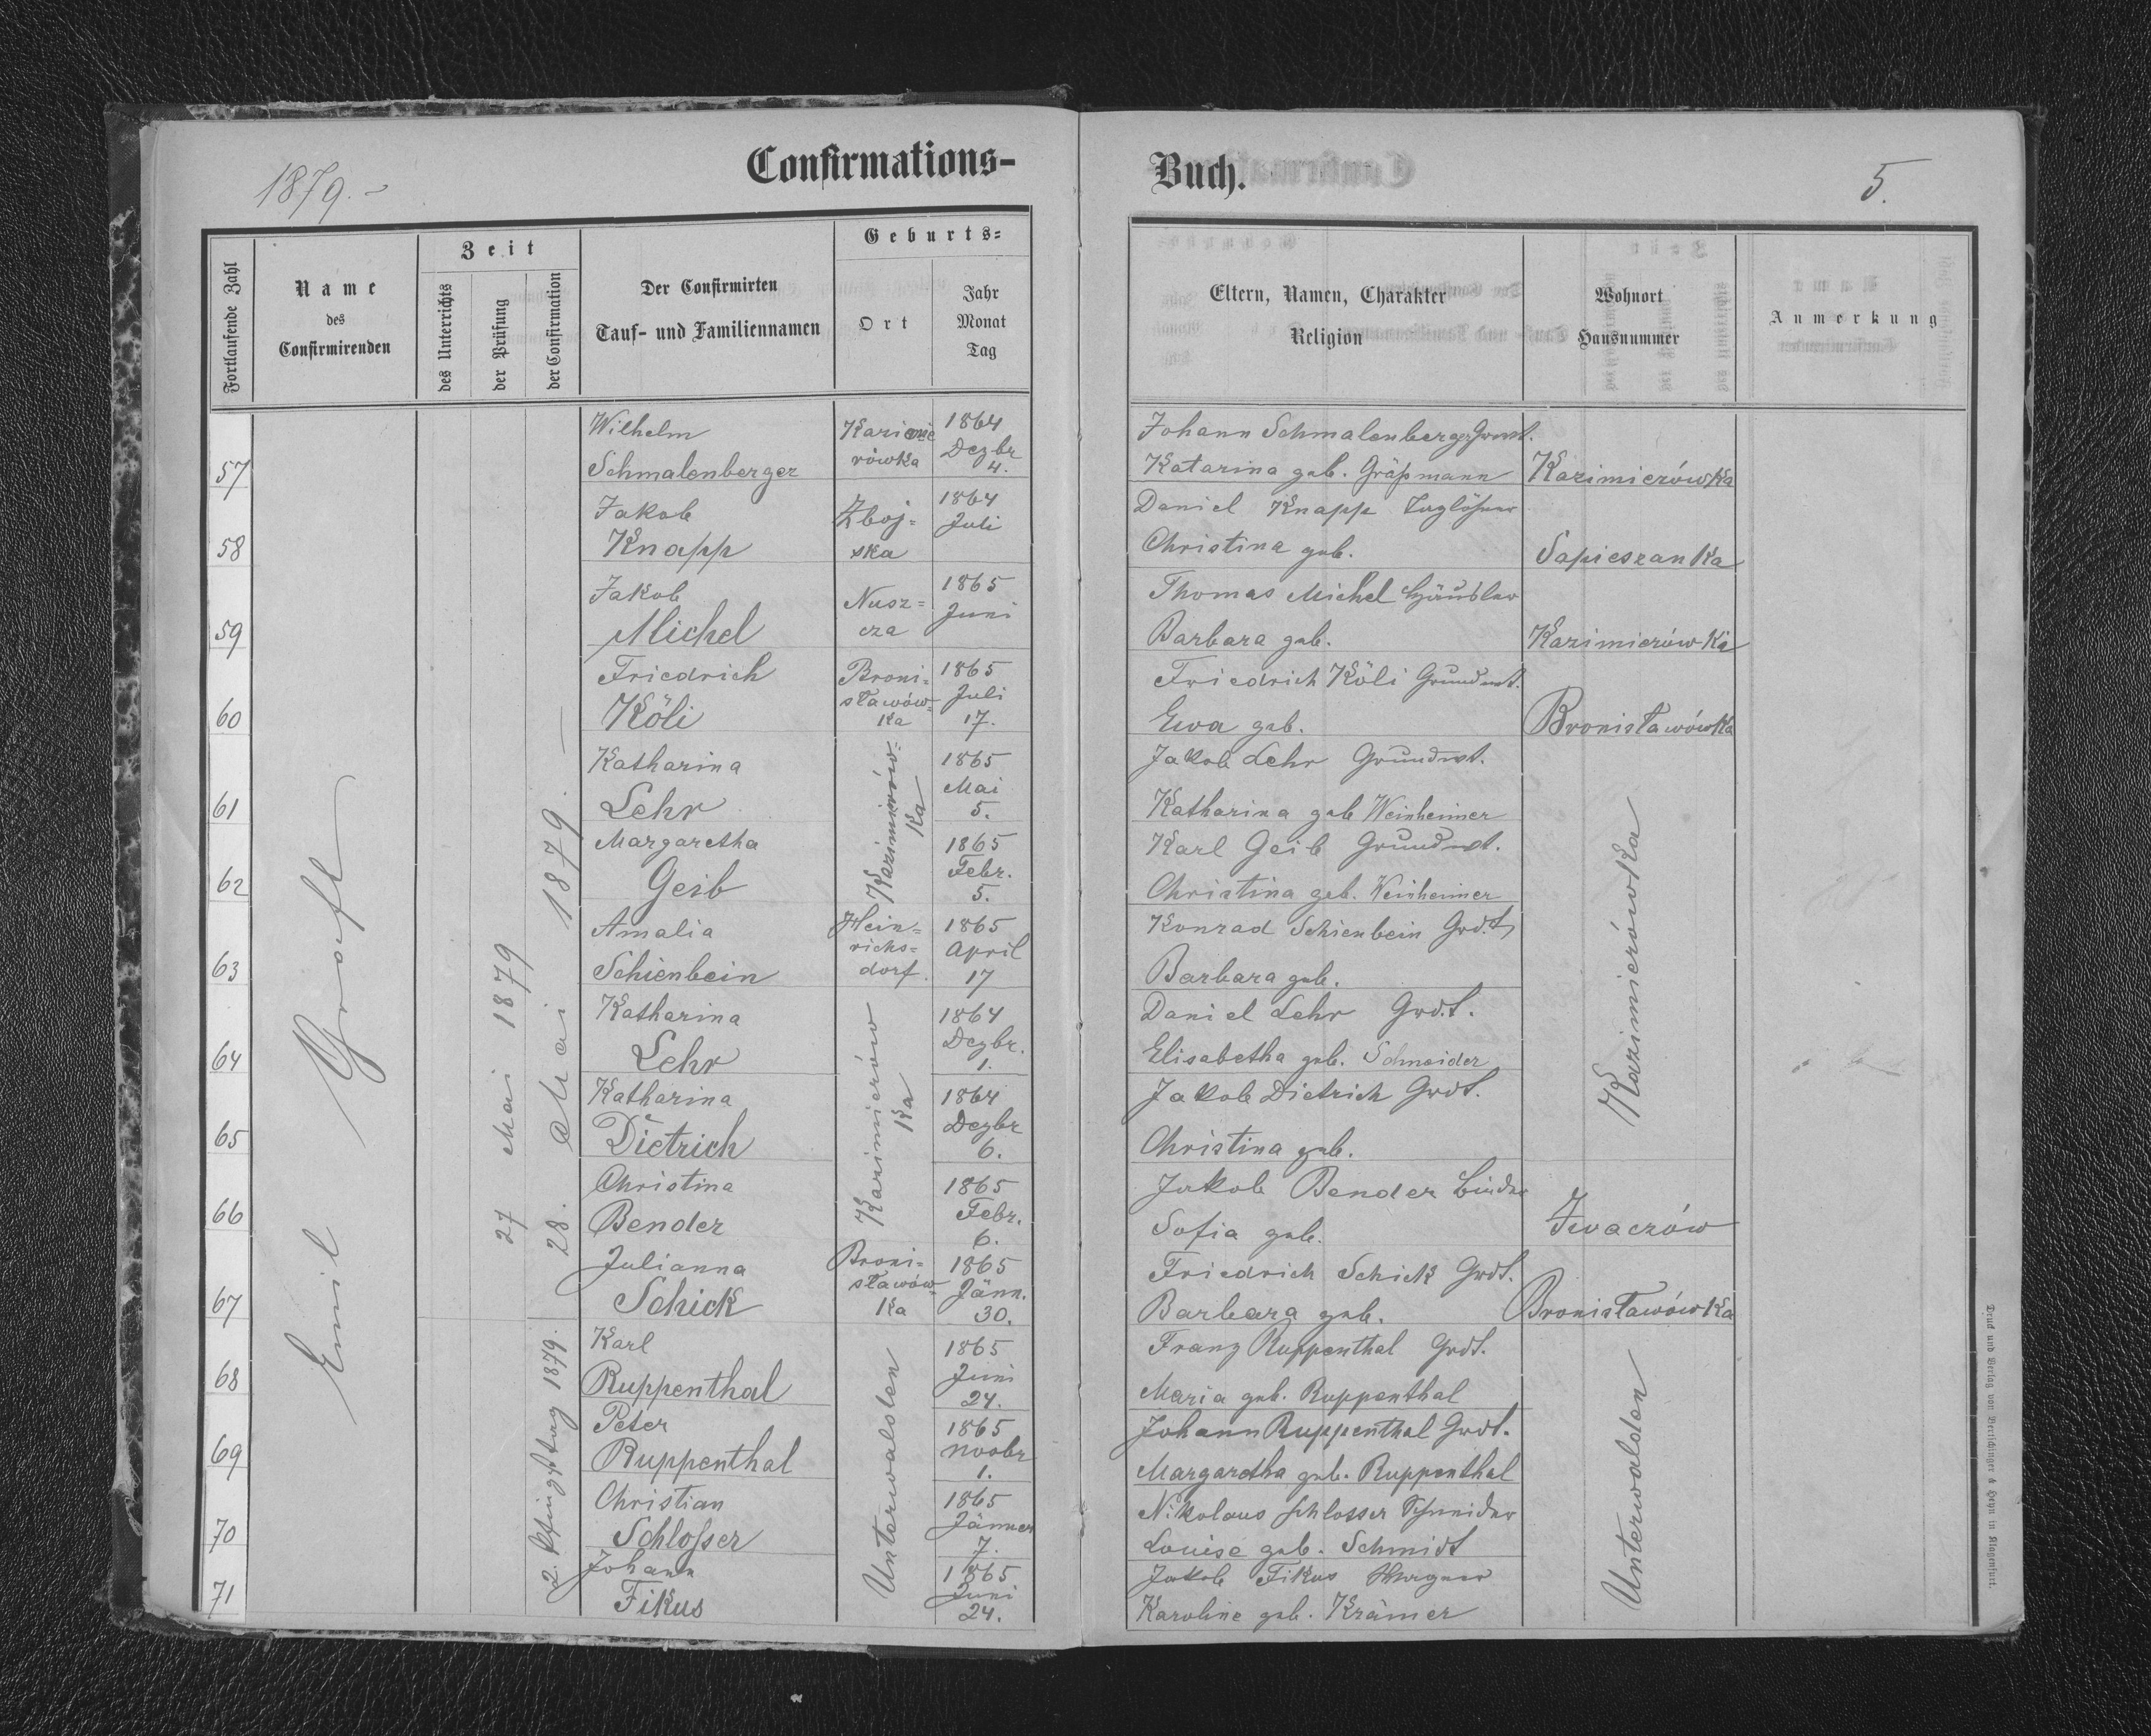 1879.-
Confirmations-
Buch.
5.
Fortlaufende Zahl
Name
des
Confirmirenden
Zeit
des Unterrichts
der Prüfung
der Confirmation
Der Confirmirten
Tauf- und Familiennamen
Geburts-
Ort
Jahr
Monat
Tag
Eltern, Namen, Charakter
Religion
Wohnort
Hausnummer
Anmerkung
Emil
27 Mai 1879
28. Mai 1879.
2. Pfingsttag 1879.
57
Wilhelm
Schmalenberger
Kazimie
rówka
1864
Dezbr
4.
Johann Schmalenberger Grwt.
Katarina geb. Gräßmann
Kazimierówka
58
Jakob
Knapp
Zboj-
ska
1864
Juli
Daniel Knapp Taglöhner
Christina geb.
Sapieszanka
59
Jakob
Michel
Nusz-
cza
1865
Juni
Thomas Michel Häusler
Barbara geb.
Kazimierówka
60
Friedrich
Köli
Broni-
sławów-
ka
1865
Juli
17.
Friedrich Köli Grundwt.
Ewa geb.
Bronisławówka
61
Katharina
Lehr
Kazimierów-
ka
1865
Mai
5.
Jakob Lehr Grundwt.
Katharina geb Weinheimer
Kazimierówka
62
Margaretha
Geib
1865
Febr.
5.
Karl Geib Grundwt.
Christina geb. Weinheimer
63
Amalia
Schienbein
Hein-
richs-
dorf.
1865
April
17
Konrad Schienbein Grdt.
Barbara geb.
64
Katharina
Lehr
Kazimierów
ka
1864
Dezbr.
1.
Daniel Lehr Grdt.
Elisabetha geb. Schneider
65
Katharina
Dietrich
1864
Dezbr
6.
Jakob Dietrich Grdt.
Christina geb.
66
Christina
Bender
1865
Febr.
6.
Jakob Bender Binder
Sofia geb.
Iwaczów
67
Julianna
Schick
Broni-
sławów-
ka
1865
Jänn.
30.
Friedrich Schick Grdt.
Barbara geb.
Bronisławówka
68
Karl
Ruppenthal
Unterwalden
1865
Juni
24.
Franz Ruppenthal Grdt.
Maria geb. Ruppenthal
Unterwalden
69
Peter
Ruppenthal
1865
Novbr
1.
Johann Ruppenthal Grdt.
Margaretha geb. Ruppenthal
70
Christian
Schloßer
1865
Jänner
7.
Nikolaus Schlosser Schneider
Louise geb. Schmidt
71
Johann
Fikus
1865
Juni
24.
Jakob Fikus Wagner
Karoline geb. Krämer